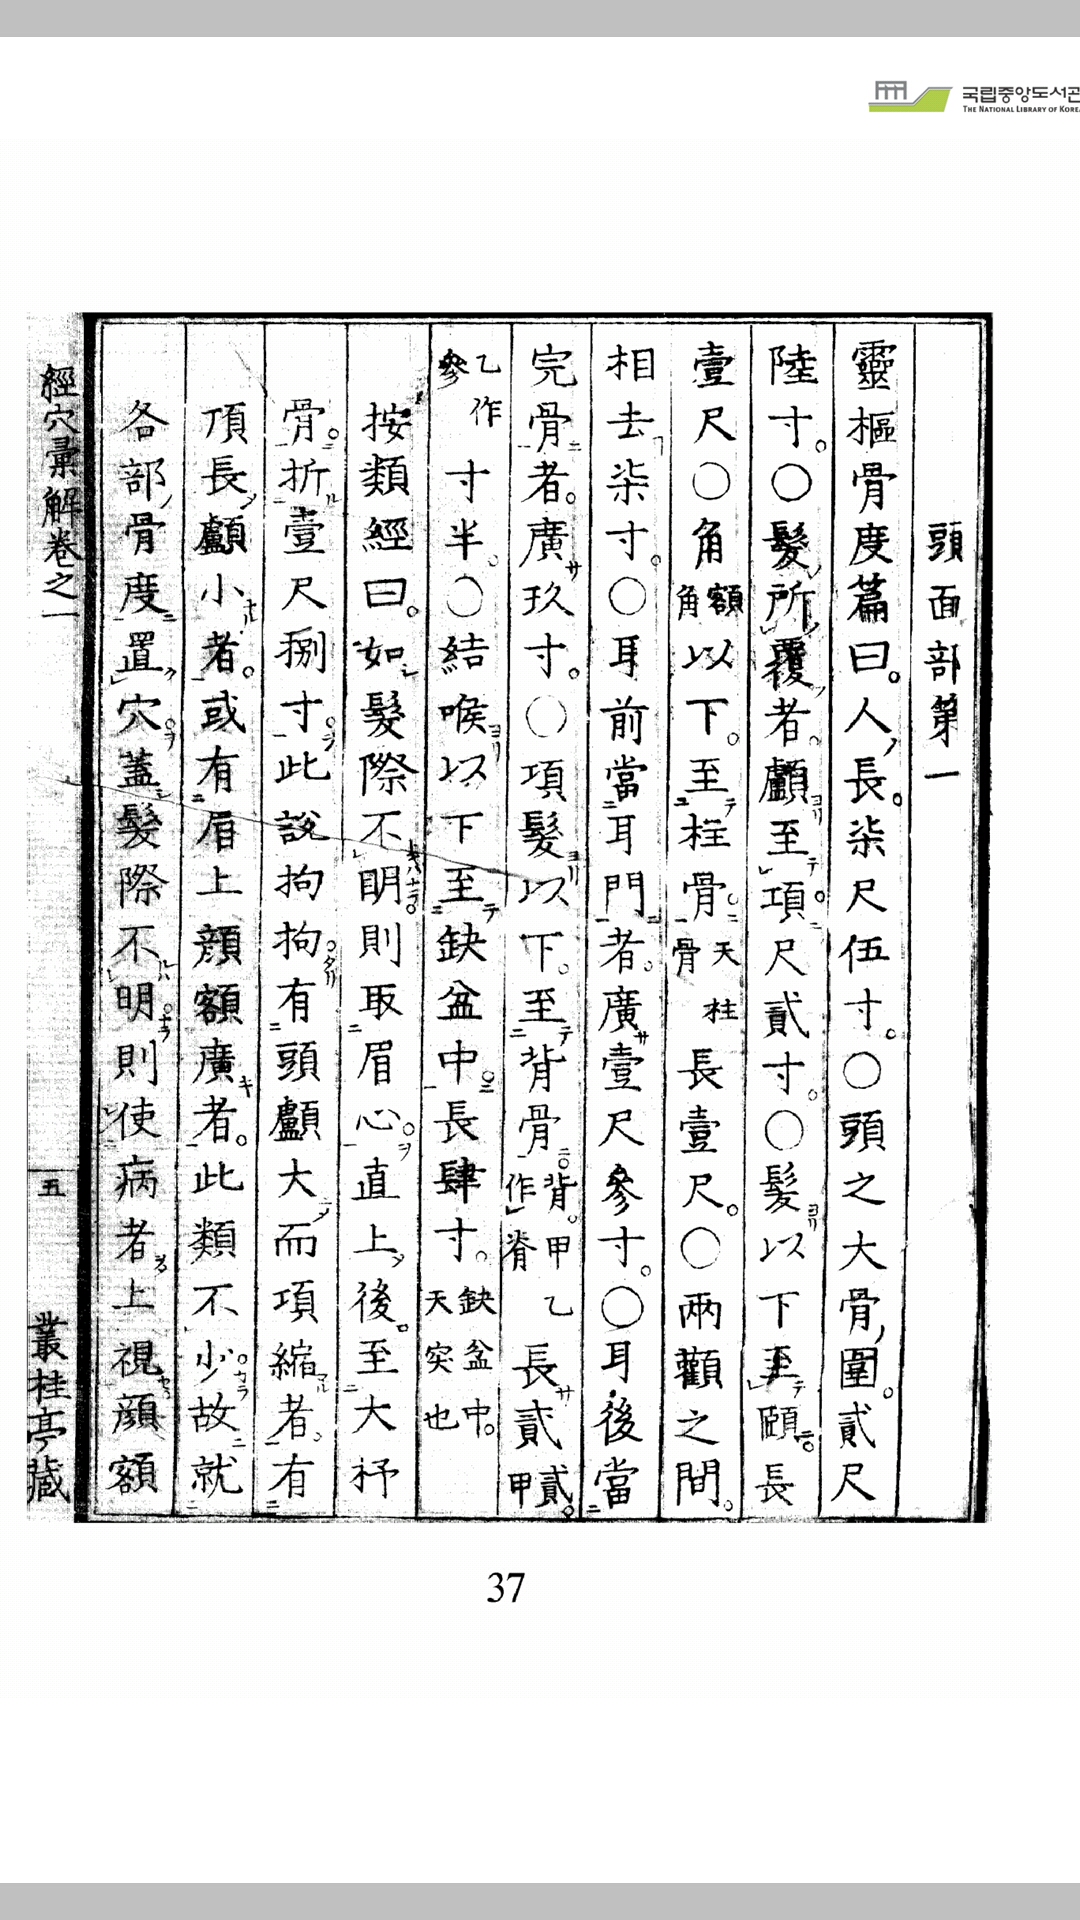 국립중앙도서관
THE NATIONAL LIBRARY OF KOREA
頭面部第一
靈樞骨度篇曰。人ノ長。柒尺伍寸。〇頭之大骨ノ圍。貳尺
陸寸。〇髮ノ所ノ覆ノ者。顱ヨリ至テ項ニ。尺貳寸。〇髮ヨリ以下至テ頤ニ。長
壹尺〇角額角以下。至テ柱骨ニ。天柱骨長壹尺。〇兩顴之間。
相去柒寸。〇耳前當耳門者。廣サ壹尺參寸。〇耳後當
完骨者。廣サ玖寸。〇項髮ヨリ以下。至テ背骨ニ。背。甲乙作脊長サ貳貳。甲
乙作參寸半。〇結喉ヨリ以下至テ缺盆中ニ。長肆寸。缺盆中。天突也
按類經曰。如髮際不明則取眉心ヲ。直上後。至大杼
骨。折壹尺捌寸。此說拘拘。有頭顱大而項縮者。有
頂長顱小者。或有眉上顏額廣者。此類不少。故就
各部ノ骨度ニ置穴ヲ。蓋髮際不明則使病者上視顏額
經穴彙解卷之一
五
叢桂亭藏
37